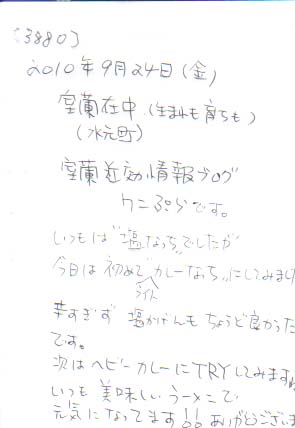 [3880]
2010年9月24日(金)
室蘭在中(生まれも育ちも)
(水元町)
室蘭近効情報ブログ
クニぷらです。
いつもは"塩なっち"でしたが
今日は初めてカレーなっち"にしてみまし
ライト
辛すぎず 塩かげんもちょうど良かった
です。
次はヘビーカレーにTRYしてみます
いつも美味しいラーメンで
元気になってます!! ありがとうござい